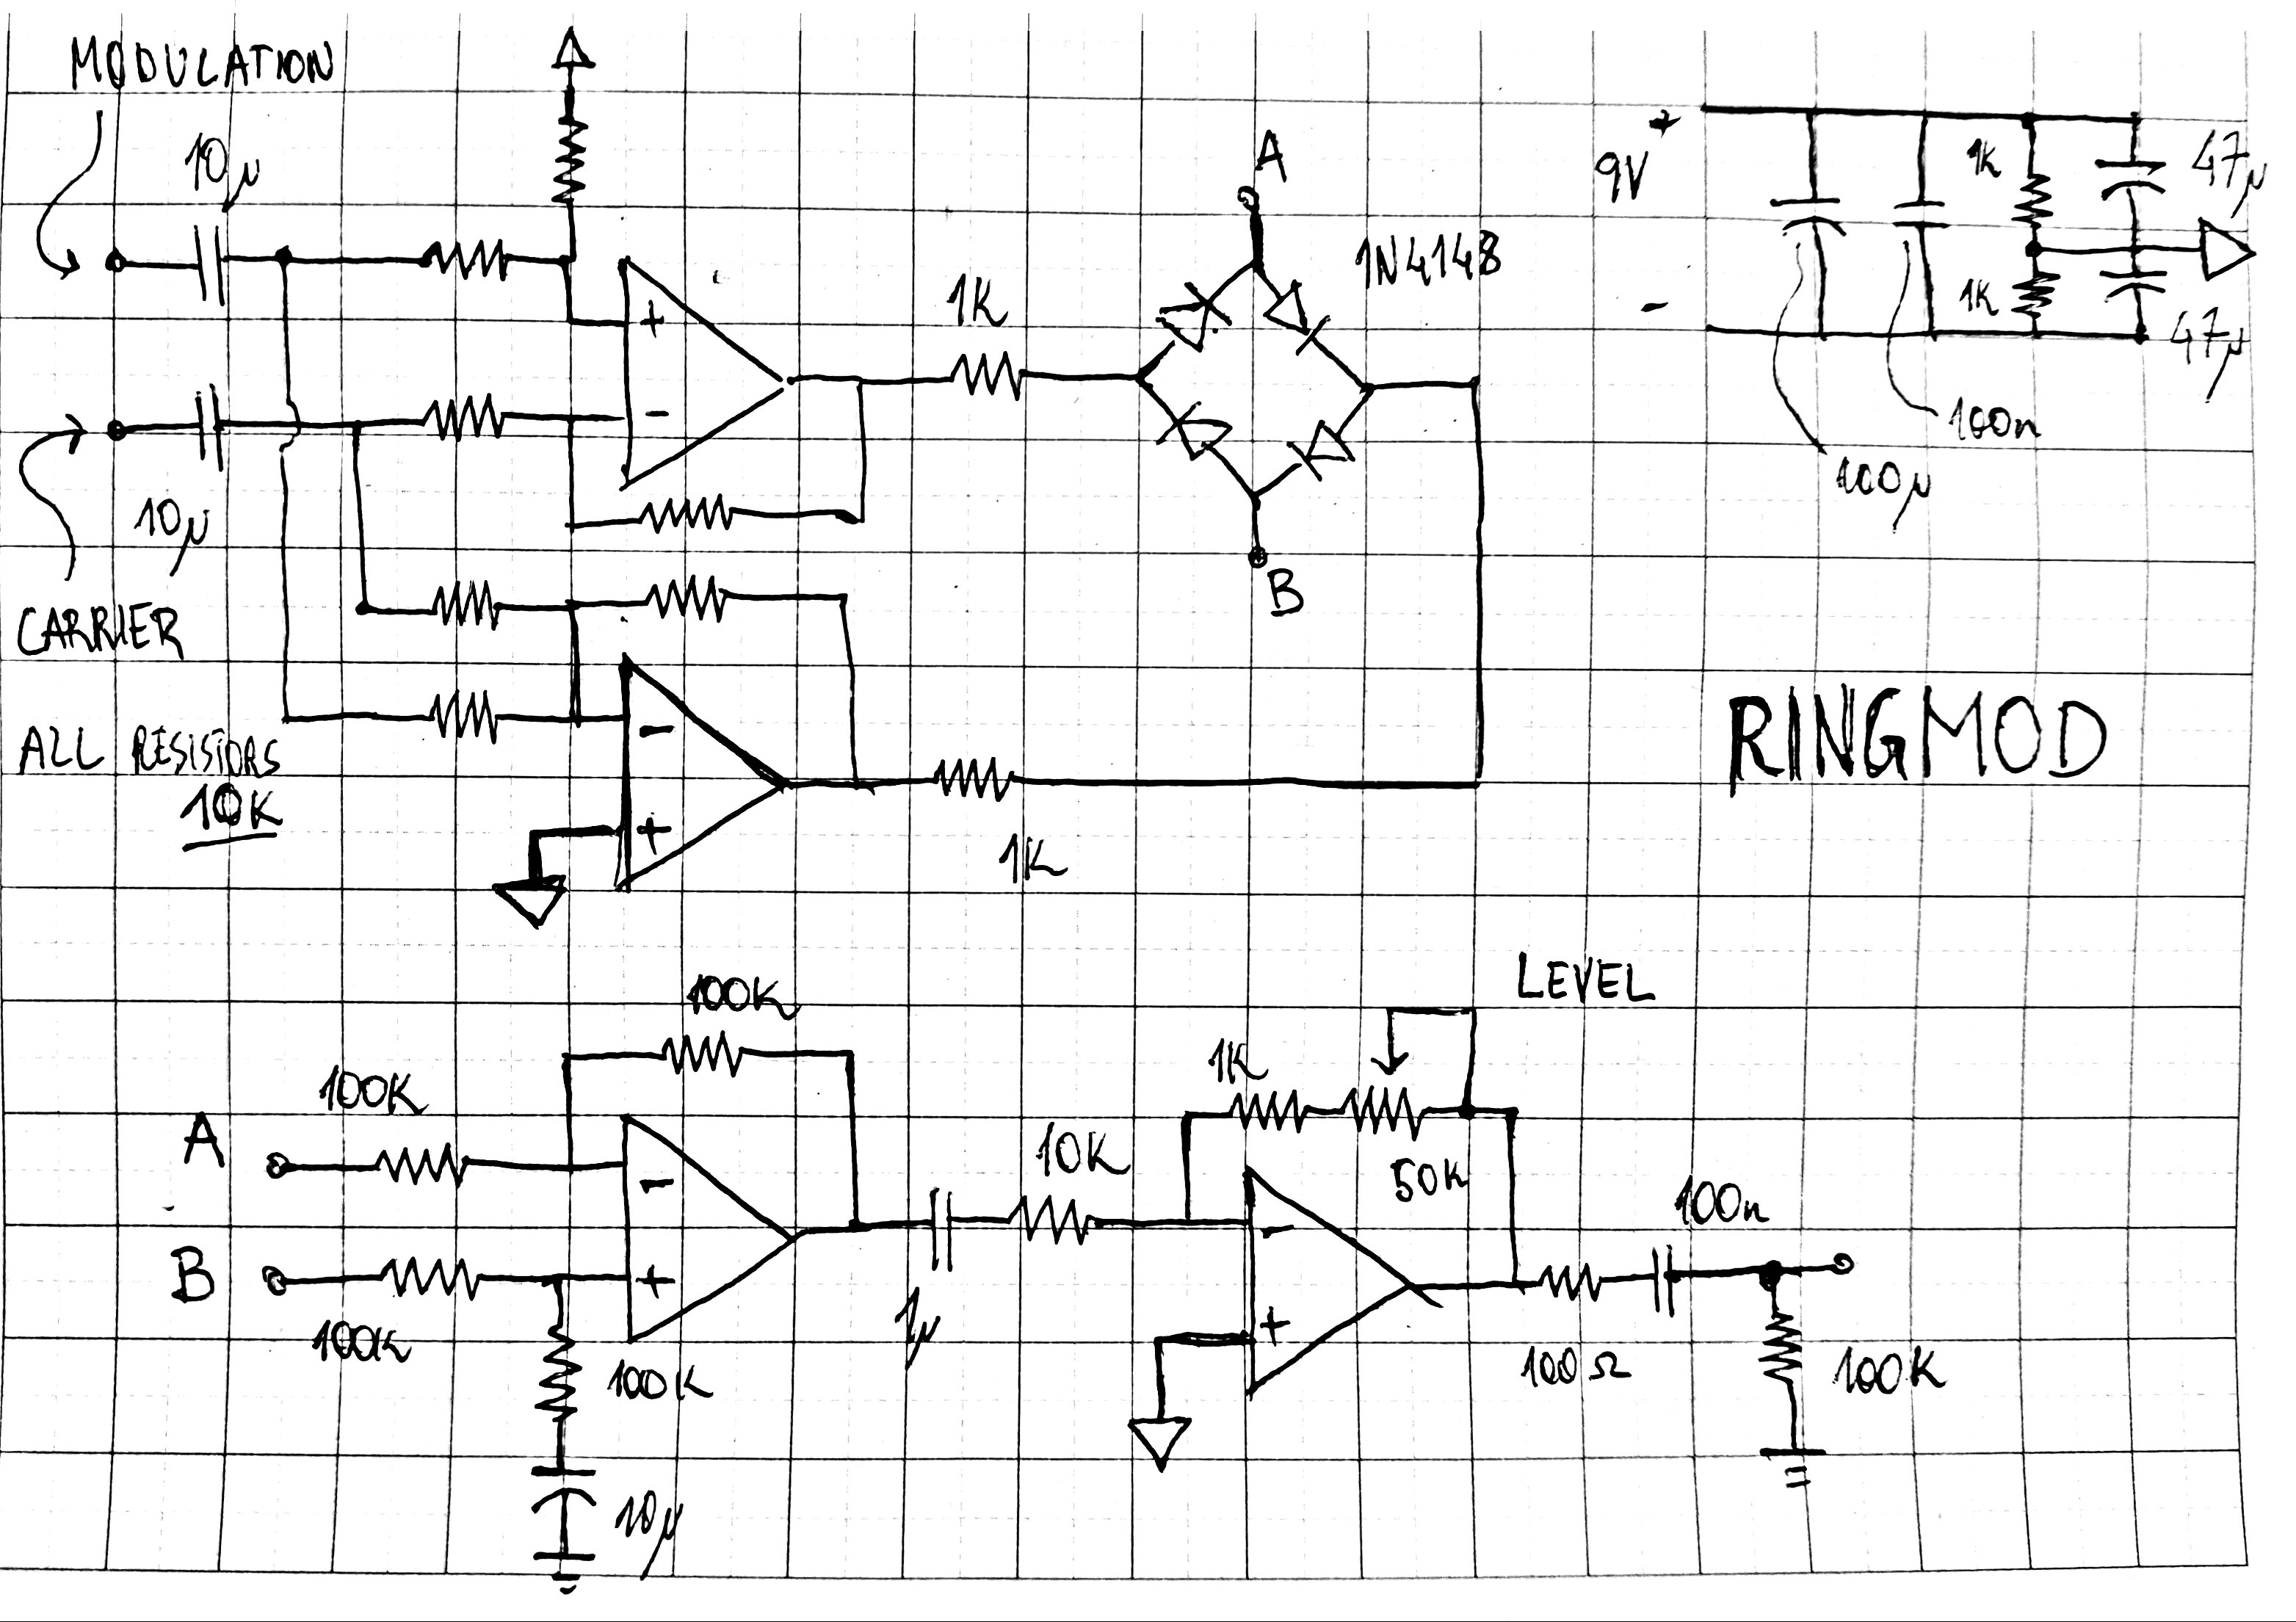 MODULATION
10µ
+
-
10µ
CARRIER
ALL RESISTORS
10K
+
-
1K
-
+
1K
A
1N4148
B
+
9V
-
1K
1K
47µ
47µ
100n
100µ
RINGMOD
LEVEL
100K
100K
A
-
B
+
100K
100K
10µ
1µ
10K
1K
50K
-
+
100n
100Ω
100K